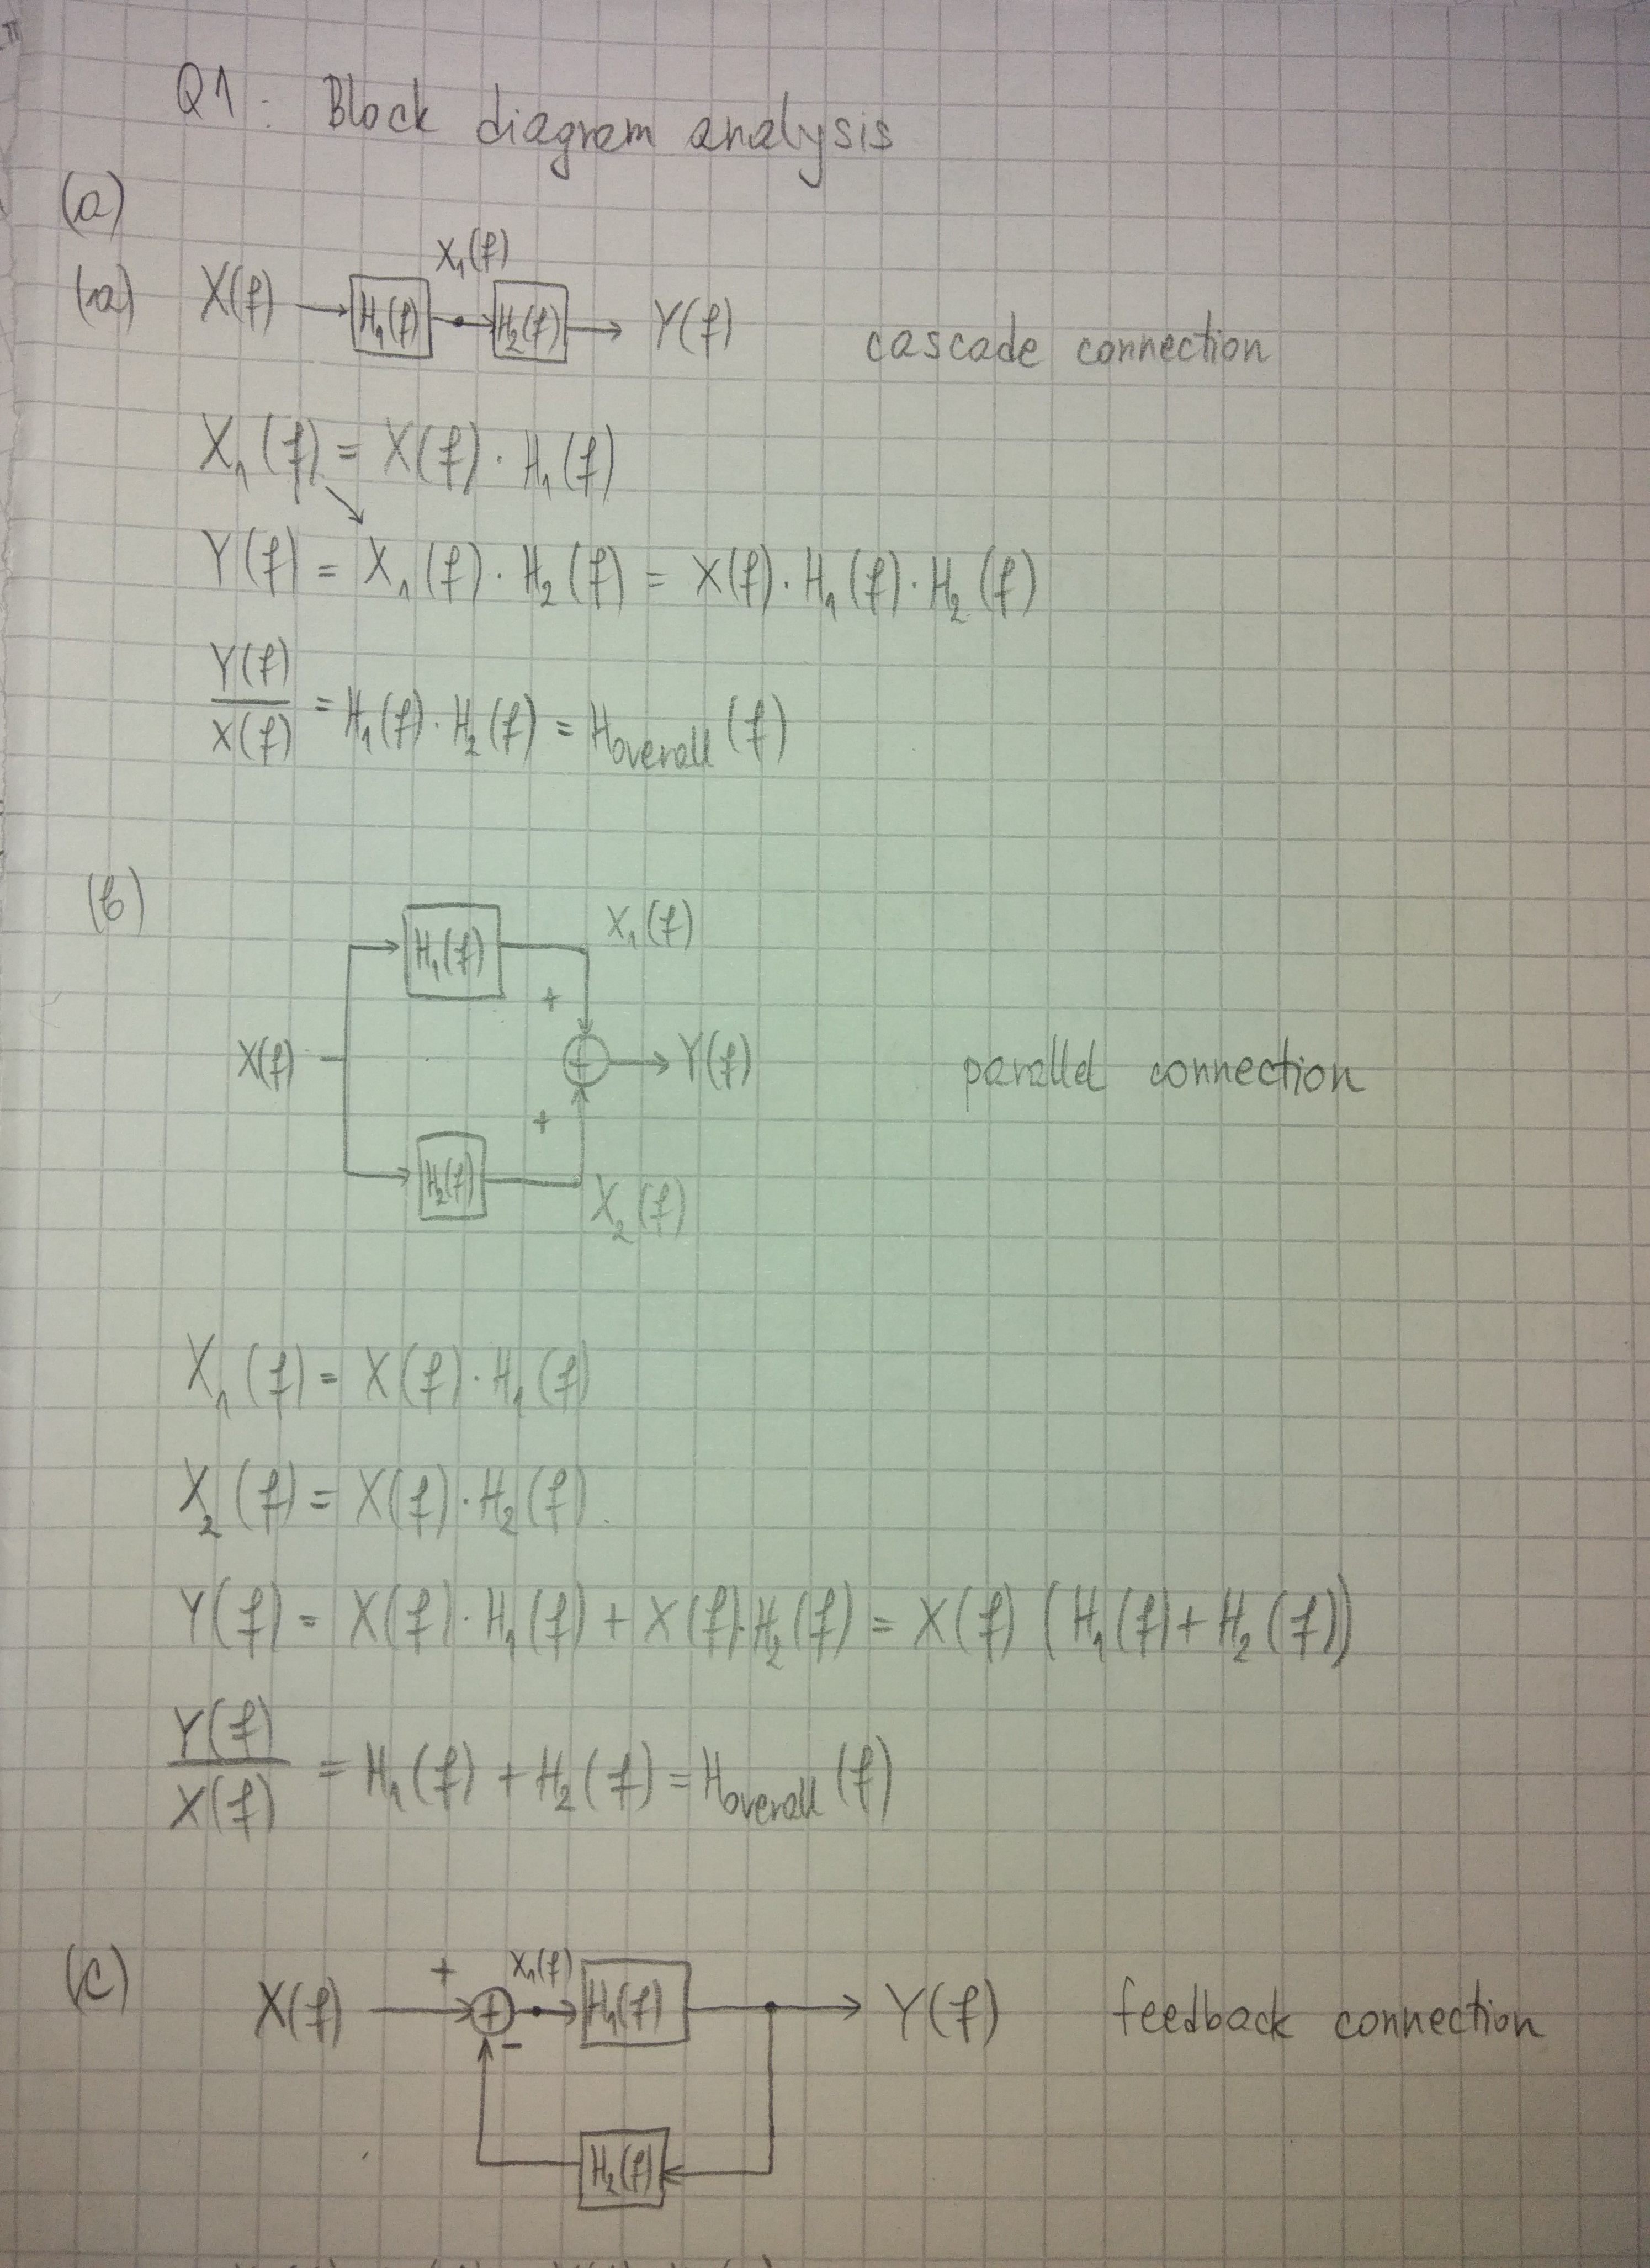 Q1: Block diagram analysis
(a)
(a) X(f) H₁(f) X₁(f) H₂(f) Y(f) cascade connection
X₁(f) = X(f) · H₁(f)
Y(f) = X₁(f) · H₂(f) = X(f) · H₁(f) · H₂(f)
Y(f)/X(f) = H₁(f) · H₂(f) = Hoverall(f)
(b)
H₁(f) X₁(f)
+
X(f) + Y(f) parallel connection
+
H₂(f) X₂(f)
X₁(f) = X(f) · H₁(f)
X₂(f) = X(f) · H₂(f)
Y(f) = X(f) · H₁(f) + X(f) · H₂(f) = X(f) (H₁(f) + H₂(f))
Y(f)/X(f) = H₁(f) + H₂(f) = Hoverall(f)
(c) X(f) + + X₁(f) H₁(f) Y(f) feedback connection
-
H₂(f)